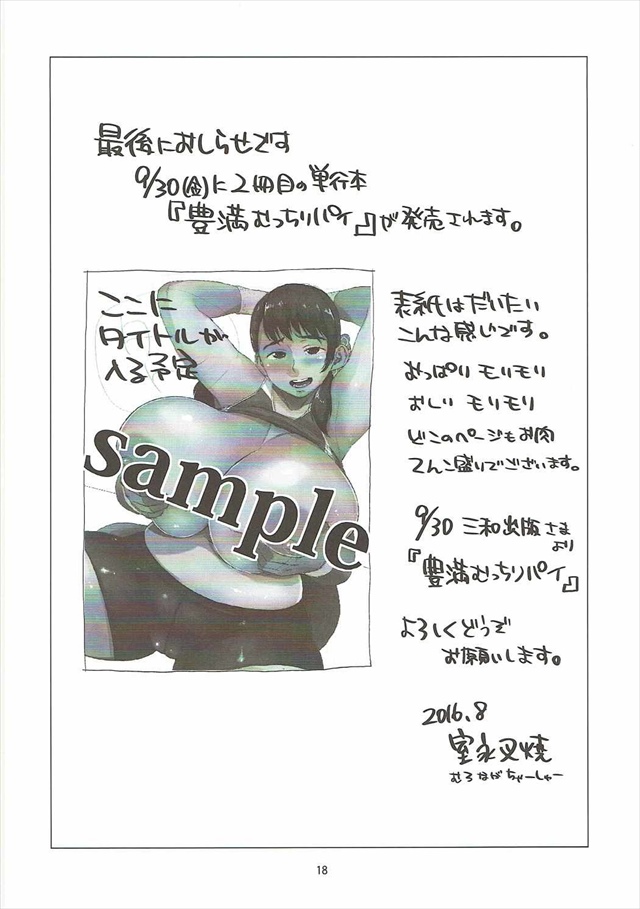 最後におしらせです
9/30(金)に2冊目の単行本
『豊満むっちりパイ』が発売されます。
ここに
タイトルが
入る予定
sample
表紙はだいたい
こんな感じです。
おっぱい モリモリ
おしり モリモリ
どこのページもお肉
てんこ盛りでございます。
9/30 三和出版さま
より
『豊満むっちりパイ』
よろしくどうぞ
お願いします。
2016.8
室永叉焼
むろながちゃーしゅー
18